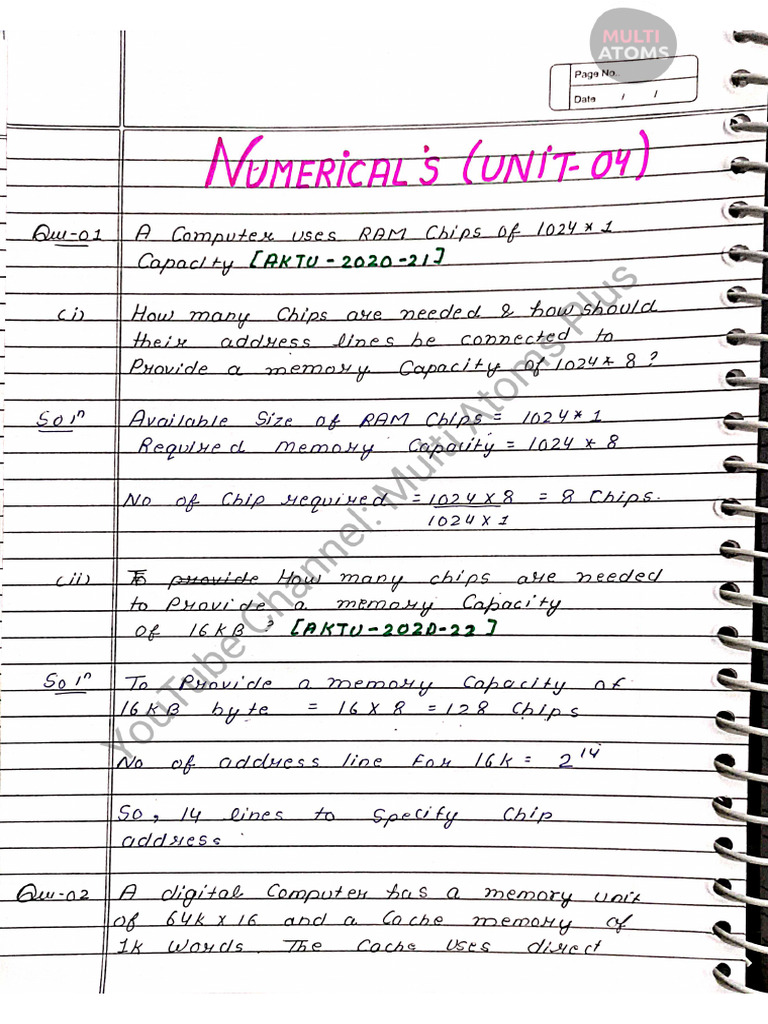 MULTI
ATOMS
Page No..
Date / /
NUMERICAL'S (UNIT-04)
Que-01 A Computer uses RAM Chips of 1024 * 1
Capacity [AKTU-2020-21]
(i) How many Chips are needed & how should
their address lines be connected to
Provide a memory Capacity of 1024 * 8?
Solⁿ Available Size of RAM Chips = 1024 * 1
Required memory Capacity = 1024 * 8
No of Chip required = 1024 x 8 = 8 Chips.
1024 x 1
(ii) To provide How many chips are needed
to Provide a memory Capacity
of 16KB ? [AKTU-2020-22]
Solⁿ To Provide a memory Capacity of
16KB byte = 16 x 8 = 128 Chips
No of address line For 16k = 2¹⁴
So, 14 lines to Specify Chip
address.
Que-02 A digital Computer has a memory unit
of 64k x 16 and a Cache memory of
1k words. The Cache uses direct
YouTube Channel: Multi Atoms Plus